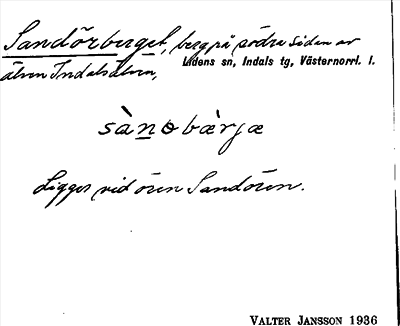 Sandörberget, berg på södra sidan av
Lidens sn, Indals tg, Västernorrl. l.
älven Indalsälven,
sàn̲ɵbær̀jæ
Ligger vid ören Sandören.
VALTER JANSSON 1936